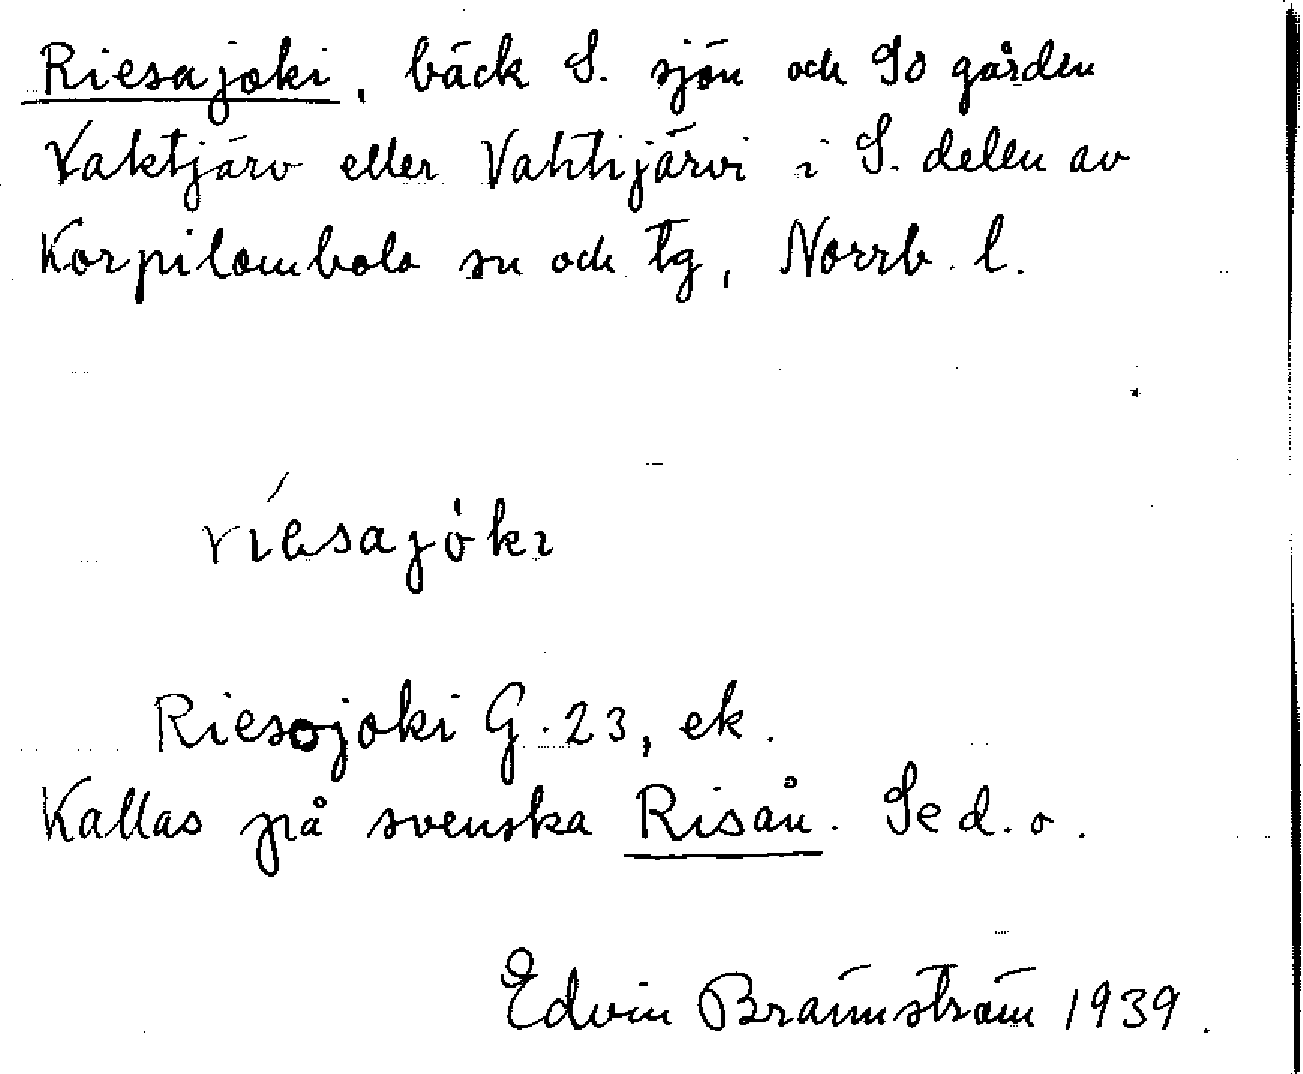 Riesajoki, bäck S. sjön och So gården
Vaktjärv eller Vahtijärvi i S. delen av
Korpilombolo sn och tg, Norrb. l.
ríesajòki
Riesojoki G. 23, ek.
Kallas på svenska Risån. Se d. o.
Edvin Brännström 1939.